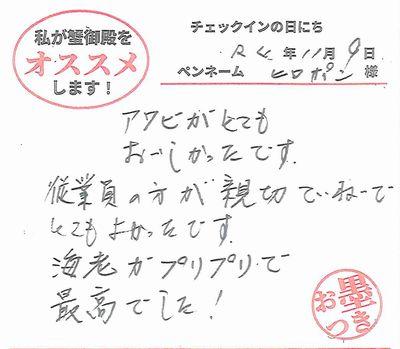 私が蟹御殿を
オススメ
します!
チェックインの日にち
R4年11月9日
ペンネーム ヒロポン 様
アワビがとても
おいしかったです.
従業員の方が親切でいねーで
とてもよかったです.
海老がプリプリで
最高でした!
お墨つき